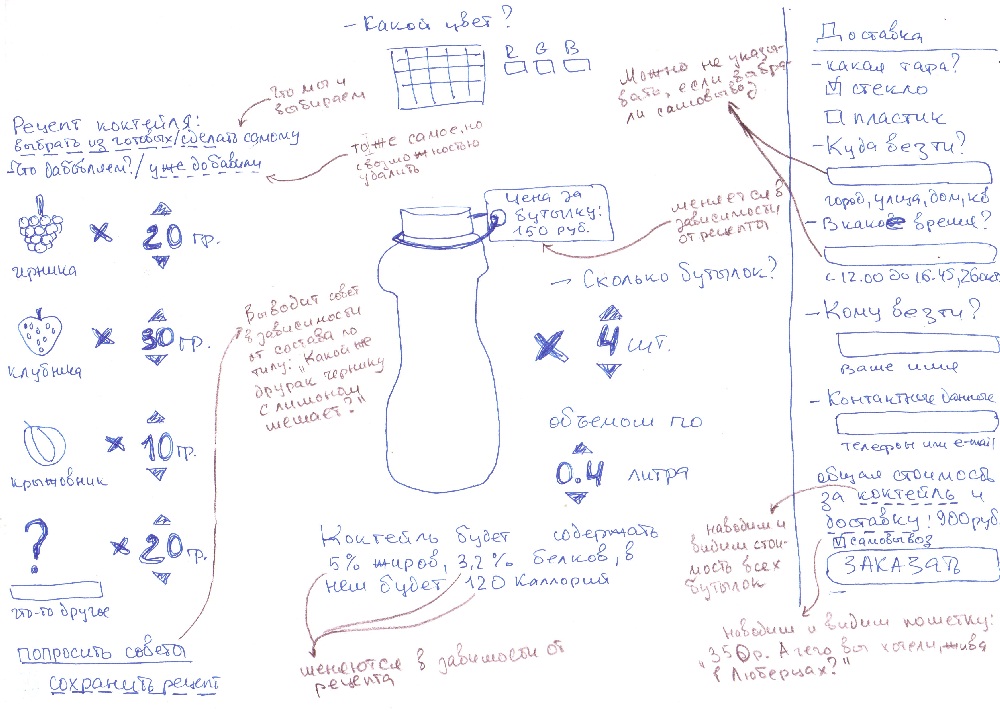 - Какой цвет?
R G B
что мы и
выбираем
Рецепт коктейля:
выбрать из готовых/сделать самому
Что добавляем?/уже добавили
то же самое, но
с возможностью
удалить
черника
× 20 гр.
клубника
× 30 гр.
крыжовник
× 10 гр.
?
× 20 гр.
что-то другое
попросить совета
сохранить рецепт
Выводит совет
в зависимости
от состава по
типу: „Какой же
дурак чернику
с лимоном
мешает?"
Цена за
бутылку:
150 руб.
меняется в
зависимости
от рецепта
- Сколько бутылок?
× 4 шт.
объемом по
0.4 литра
Коктейль будет содержать
5% жиров, 3,2% белков, в
нем будет 120 Каллорий
меняются в зависимости от
рецепта
Можно не указы-
вать, если выбра-
ли самовывоз
Доставка
- какая тара?
стекло
пластик
- Куда везти?
город, улица, дом, кв
- В какое время?
с 12.00 до 16.45, 26
- Кому везти?
Ваше имя
- Контактные данные
телефон или e-mail
общая стоимость
за коктейль и
доставку: 900 руб
самовывоз
ЗАКАЗАТЬ
наводим и
видим стои-
мость всех
бутылок
Наводим и видим пометку:
"350р. А чего вы хотели, живя
в Люберцах?"